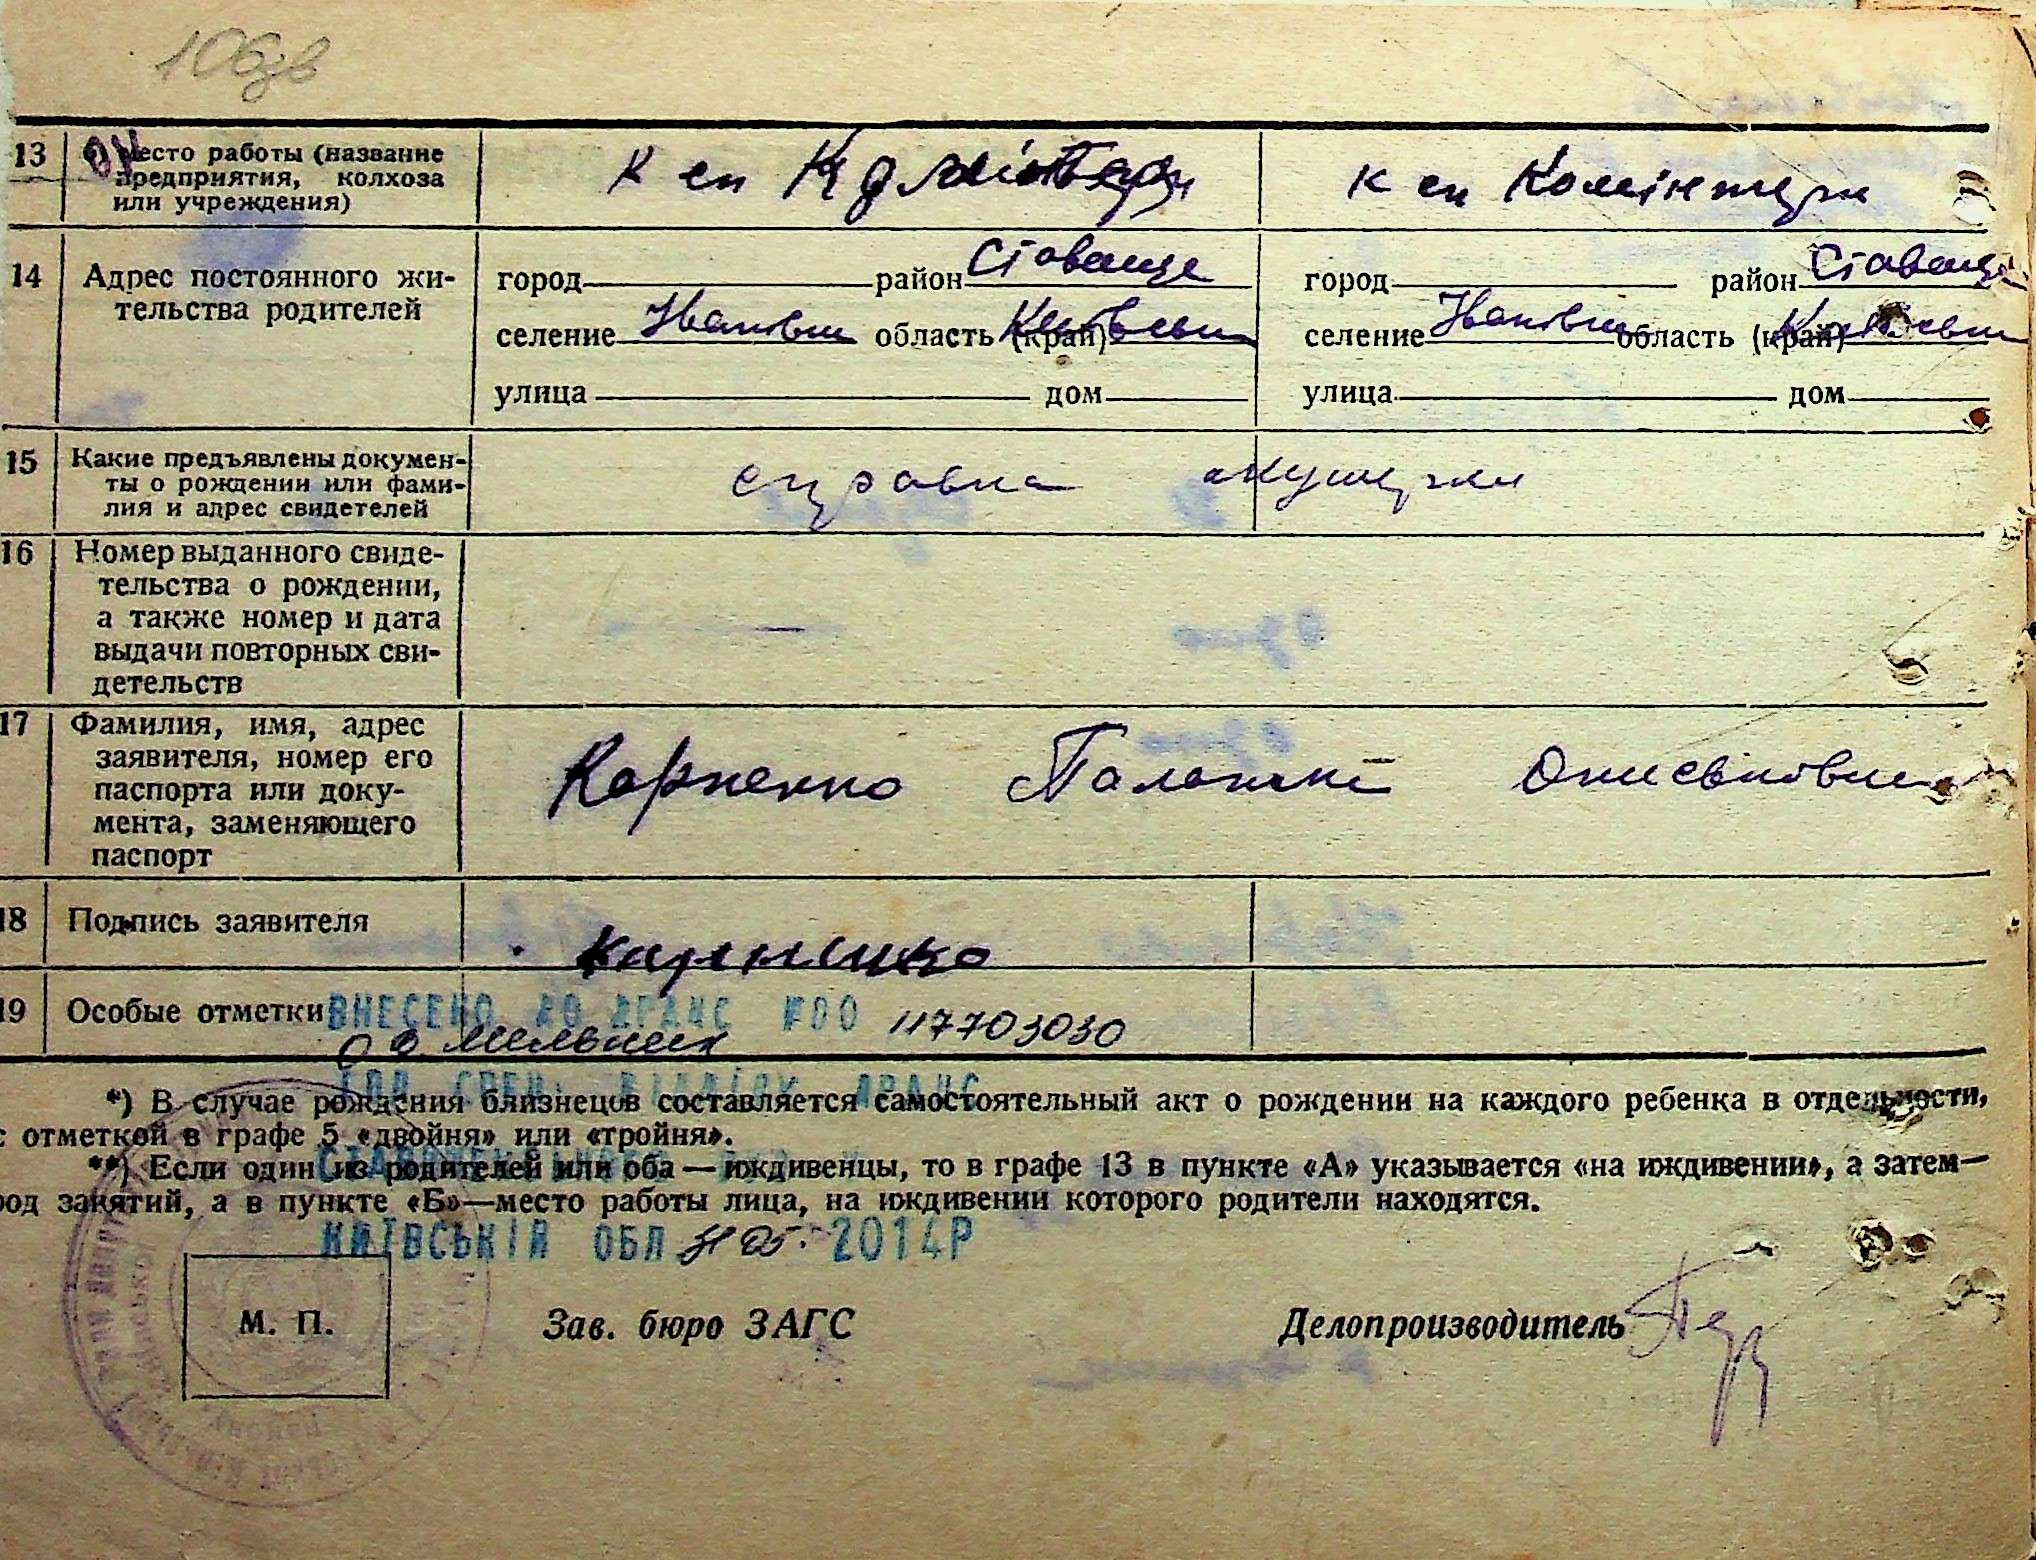 106зв
13 место работы (название
предприятия, колхоза
или учреждения)
к сп Комінтерн к сп Комінтерн
14 Адрес постоянного жи-
тельства родителей
город район Ставище город район Ставище
селение Іванівка область (край) Київська селение Іванівка область (край) Київська
улица дом улица дом
15 Какие предъявлены докумен-
ты о рождении или фами-
лия и адрес свидетелей
справка акушерки
16 Номер выданного свиде-
тельства о рождении,
а также номер и дата
выдачи повторных сви-
детельств
17 Фамилия, имя, адрес
заявителя, номер его
паспорта или доку-
мента, заменяющего
паспорт
Карпенко Палажка
18 Подпись заявителя
Карпенко
19 Особые отметки
ВНЕСЕНО ДО ДРАЦС №00 117703030
Мельник
*) В случае рождения близнецов составляется самостоятельный акт о рождении на каждого ребенка в отдельности,
с отметкой в графе 5 «двойня» или «тройня».
**) Если один из родителей или оба — иждивенцы, то в графе 13 в пункте «А» указывается «на иждивении», а затем—
род занятий, а в пункте «Б»—место работы лица, на иждивении которого родители находятся.
КИЇВСЬКІЙ ОБЛ 05. 2014Р
М. П. Зав. бюро ЗАГС Делопроизводитель